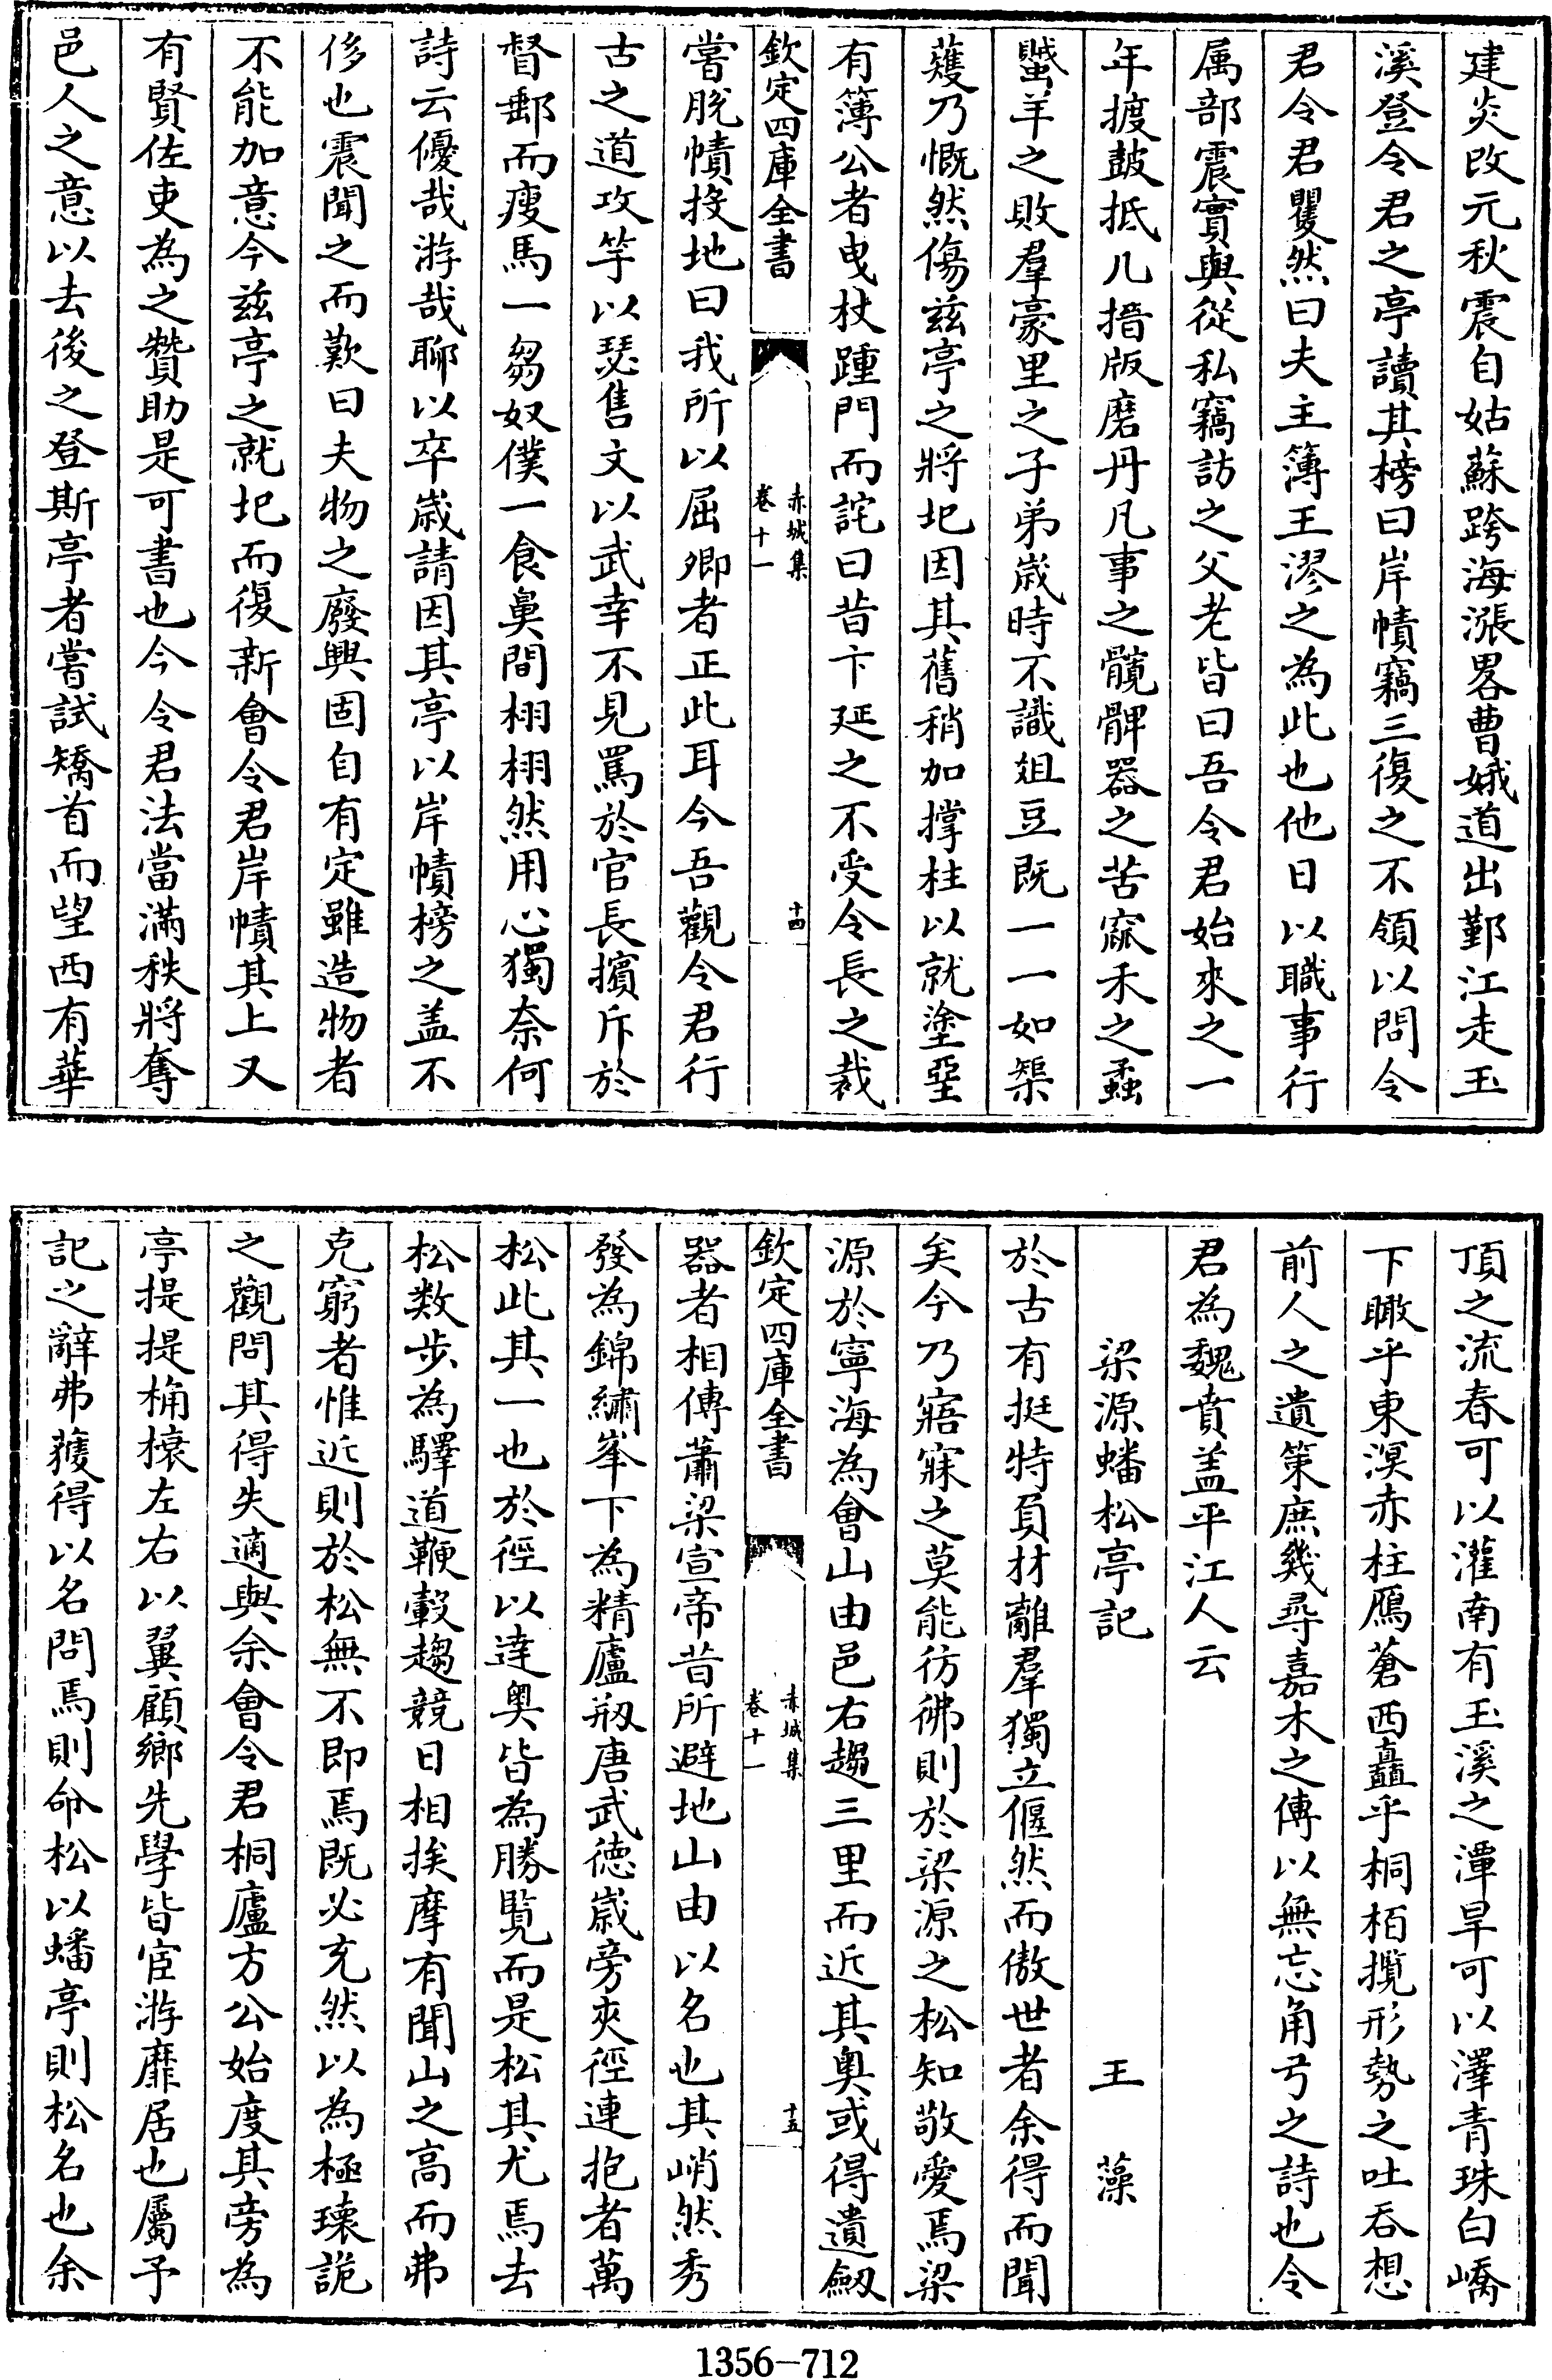 建炎改元秋震自姑蘇跨海漲畧曹娥道出鄞江走玉
溪登令君之亭讀其榜曰岸幘竊三復之不領以問令
君令君瞿然曰夫主簿王漻之為此也他日以職事行
属部震實與從私竊訪之父老皆曰吾令君始來之一
年掾鼓抵几搢版磨丹凡事之髖髀器之苦窳禾之蟊
蠈羊之敗羣豪里之子弟歲時不識俎豆既一一如榘
蒦乃慨然傷兹亭之將圯因其舊稍加撐柱以就塗堊
有簿公者曳杖踵門而詫曰昔卞延之不受令長之裁
欽定四庫全書
赤城集
卷十一
十四
嘗脱幘投地曰我所以屈卿者正此耳今吾觀令君行
古之道攻竽以瑟售文以武幸不見罵於官長擯斥於
督郵而瘦馬一芻奴僕一食鼻間栩栩然用心獨奈何
詩云優哉游哉聊以卒歲請因其亭以岸幘榜之盖不
侈也震聞之而歎曰夫物之廢興固自有定雖造物者
不能加意今兹亭之就圯而復新會令君岸幘其上又
有賢佐吏為之贊助是可書也今令君法當滿秩將奪
邑人之意以去後之登斯亭者嘗試矯首而望西有華
頂之流春可以灌南有玉溪之潭旱可以澤青珠白嶠
下瞰乎東溟赤柱鴈蒼西矗乎桐栢攬形勢之吐吞想
前人之遺策庶幾尋嘉木之傅以無忘角弓之詩也令
君為魏賁盖平江人云
梁源蟠松亭記　王藻
於古有挺特負材離羣獨立偃然而傲世者余得而聞
矣今乃寤寐之莫能彷彿則於梁源之松知敬愛焉梁
源於寧海為會山由邑右趨三里而近其奥或得遺劒
欽定四庫全書
赤城集
卷十一
十五
器者相傳蕭梁宣帝昔所避地山由以名也其峭然秀
發為錦繡峯下為精廬剏唐武徳嵗旁夾徑連抱者萬
松此其一也於徑以逹奥皆為勝覧而是松其尤焉去
松数步為驛道鞭轂趨競日相挨摩有聞山之高而弗
克窮者惟近則於松無不即焉既必充然以為極瓌詭
之觀問其得失適與余會令君桐廬方公始度其旁為
亭提提桷榱左右以翼顧鄉先學皆宦游靡居也屬予
記之辭弗獲得以名問焉則命松以蟠亭則松名也余
1356-712